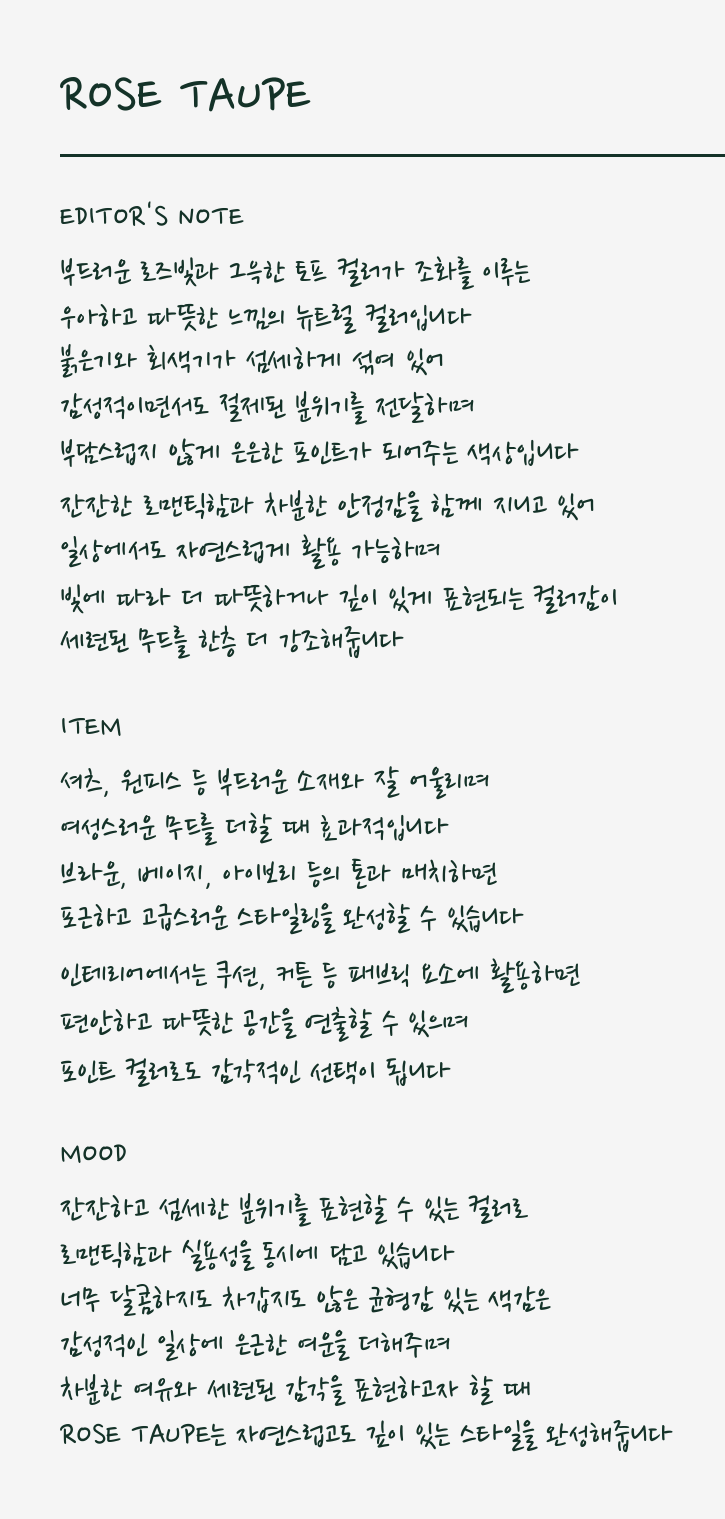 ROSE TAUPE
EDITOR'S NOTE
부드러운 로즈빛과 그윽한 토프 컬러가 조화를 이루는
우아하고 따뜻한 느낌의 뉴트럴 컬러입니다
붉은기와 회색기가 섬세하게 섞여 있어
감성적이면서도 절제된 분위기를 전달하며
부담스럽지 않게 은은한 포인트가 되어주는 색상입니다
잔잔한 로맨틱함과 차분한 안정감을 함께 지니고 있어
일상에서도 자연스럽게 활용 가능하며
빛에 따라 더 따뜻하거나 깊이 있게 표현되는 컬러감이
세련된 무드를 한층 더 강조해줍니다
ITEM
셔츠, 원피스 등 부드러운 소재와 잘 어울리며
여성스러운 무드를 더할 때 효과적입니다
브라운, 베이지, 아이보리 등의 톤과 매치하면
포근하고 고급스러운 스타일링을 완성할 수 있습니다
인테리어에서는 쿠션, 커튼 등 패브릭 요소에 활용하면
편안하고 따뜻한 공간을 연출할 수 있으며
포인트 컬러로도 감각적인 선택이 됩니다
MOOD
잔잔하고 섬세한 분위기를 표현할 수 있는 컬러로
로맨틱함과 실용성을 동시에 담고 있습니다
너무 달콤하지도 차갑지도 않은 균형감 있는 색감은
감성적인 일상에 은근한 여운을 더해주며
차분한 여유와 세련된 감각을 표현하고자 할 때
ROSE TAUPE는 자연스럽고도 깊이 있는 스타일을 완성해줍니다